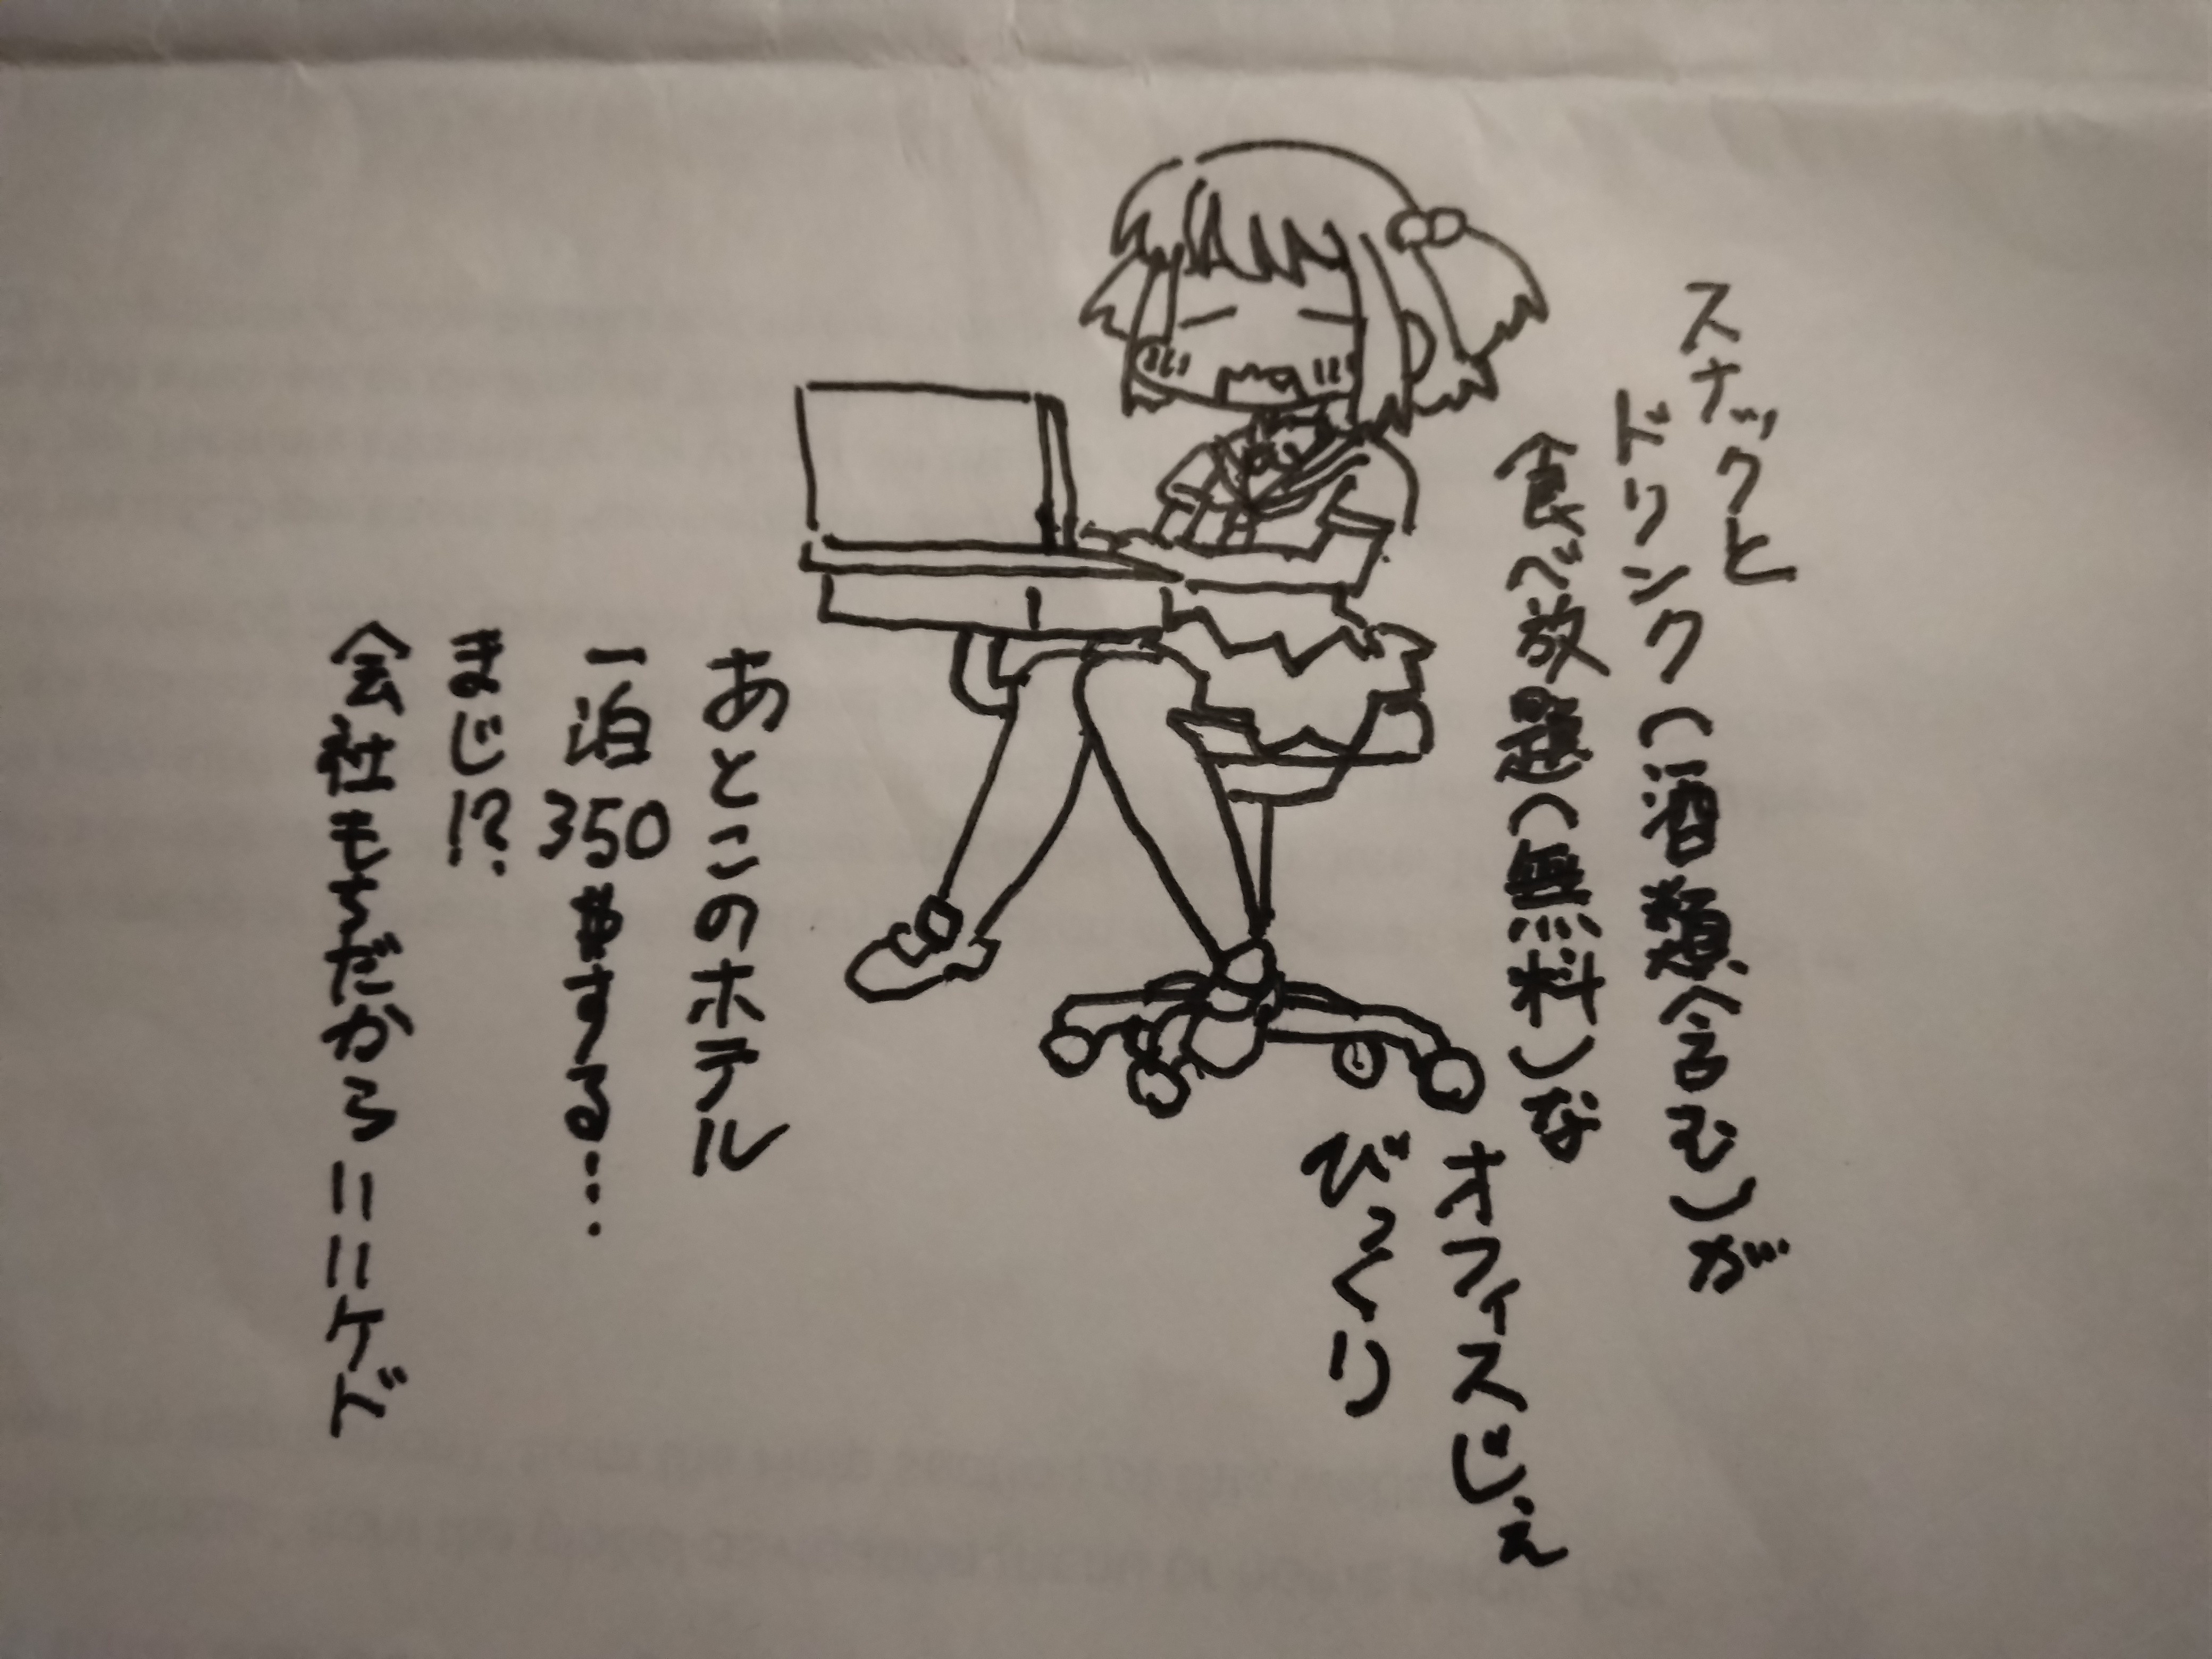 スナックと
ドリンク(酒類含む)が
食べ放題(無料)な
オフィスじぇ
びっくり
あとこのホテル
一泊350$する…
まじ!?
会社もちだから
いいケド